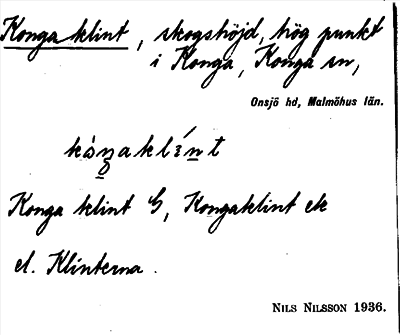 Konga klint, skogshöjd, hög punkt
i Konga, Konga sn,
Onsjö hd, Malmöhus län.
Konga klint G, Kongaklint ek
el. Klinterna.
NILS NILSSON 1936.